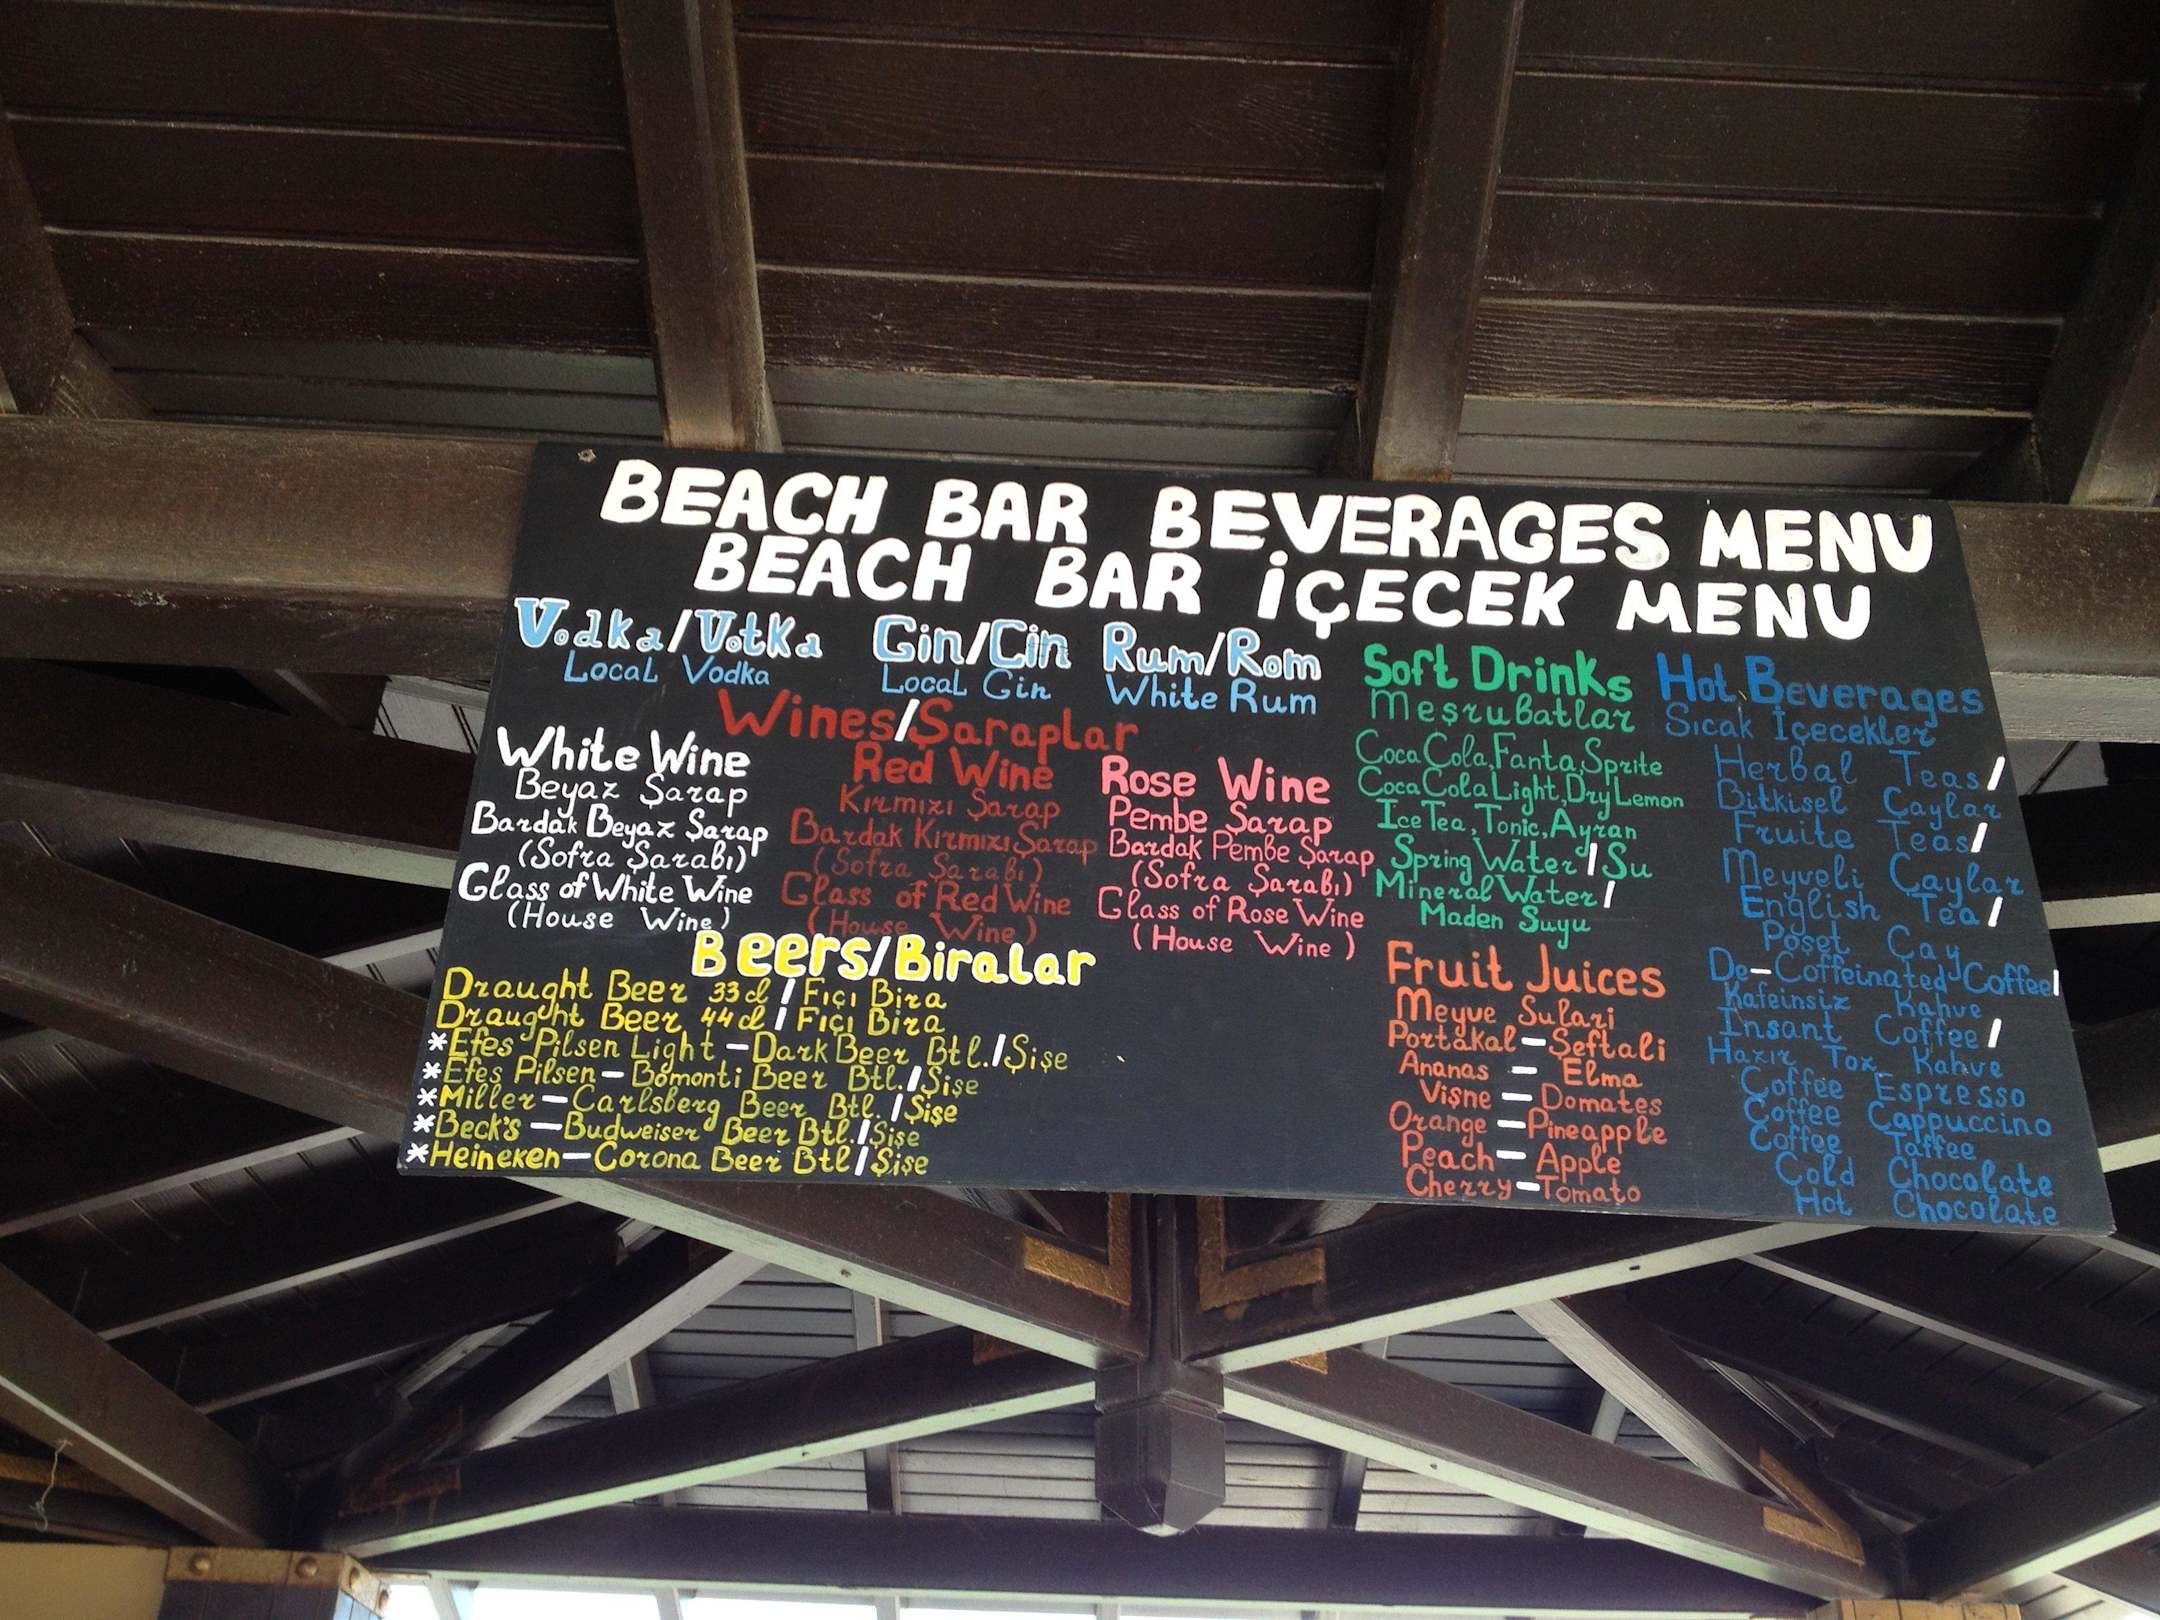 BEACH BAR BEVERAGES MENU
BEACH BAR İÇECEK MENU
Vodka/Votka
Local Vodka
Gin/Cin
Local Gin
Rum/Rom
White Rum
Wines/Şaraplar
White Wine
Beyaz Şarap
Bardak Beyaz Şarap
(Sofra Şarabı)
Glass of White Wine
(House Wine)
Red Wine
Kırmızı Şarap
Bardak Kırmızı Şarap
(Sofra Şarabı)
Glass of Red Wine
(House Wine)
Rose Wine
Pembe Şarap
Bardak Pembe Şarap
(Sofra Şarabı)
Glass of Rose Wine
(House Wine)
Beers/Biralar
Draught Beer 33cl / Fıçı Bira
Draught Beer 44cl / Fıçı Bira
*Efes Pilsen Light - Dark Beer Btl./Şişe
*Efes Pilsen - Bomonti Beer Btl./Şişe
*Miller - Carlsberg Beer Btl./Şişe
*Beck's - Budweiser Beer Btl./Şişe
*Heineken - Corona Beer Btl/Şişe
Soft Drinks
Meşrubatlar
Coca Cola, Fanta, Sprite
Coca Cola Light, Dry Lemon
Ice Tea, Tonic, Ayran
Spring Water / Su
Mineral Water /
Maden Suyu
Fruit Juices
Meyve Suları
Portakal - Şeftali
Ananas - Elma
Vişne - Domates
Orange - Pineapple
Peach - Apple
Cherry - Tomato
Hot Beverages
Sıcak İçecekler
Herbal Teas/
Bitkisel Çaylar
Fruite Teas/
Meyveli Çaylar
English Tea/
Poşet Çay
De-Coffeinated Coffee/
Kafeinsiz Kahve
Insant Coffee/
Hazır Toz Kahve
Coffee Espresso
Coffee Cappuccino
Coffee Taffee
Cold Chocolate
Hot Chocolate